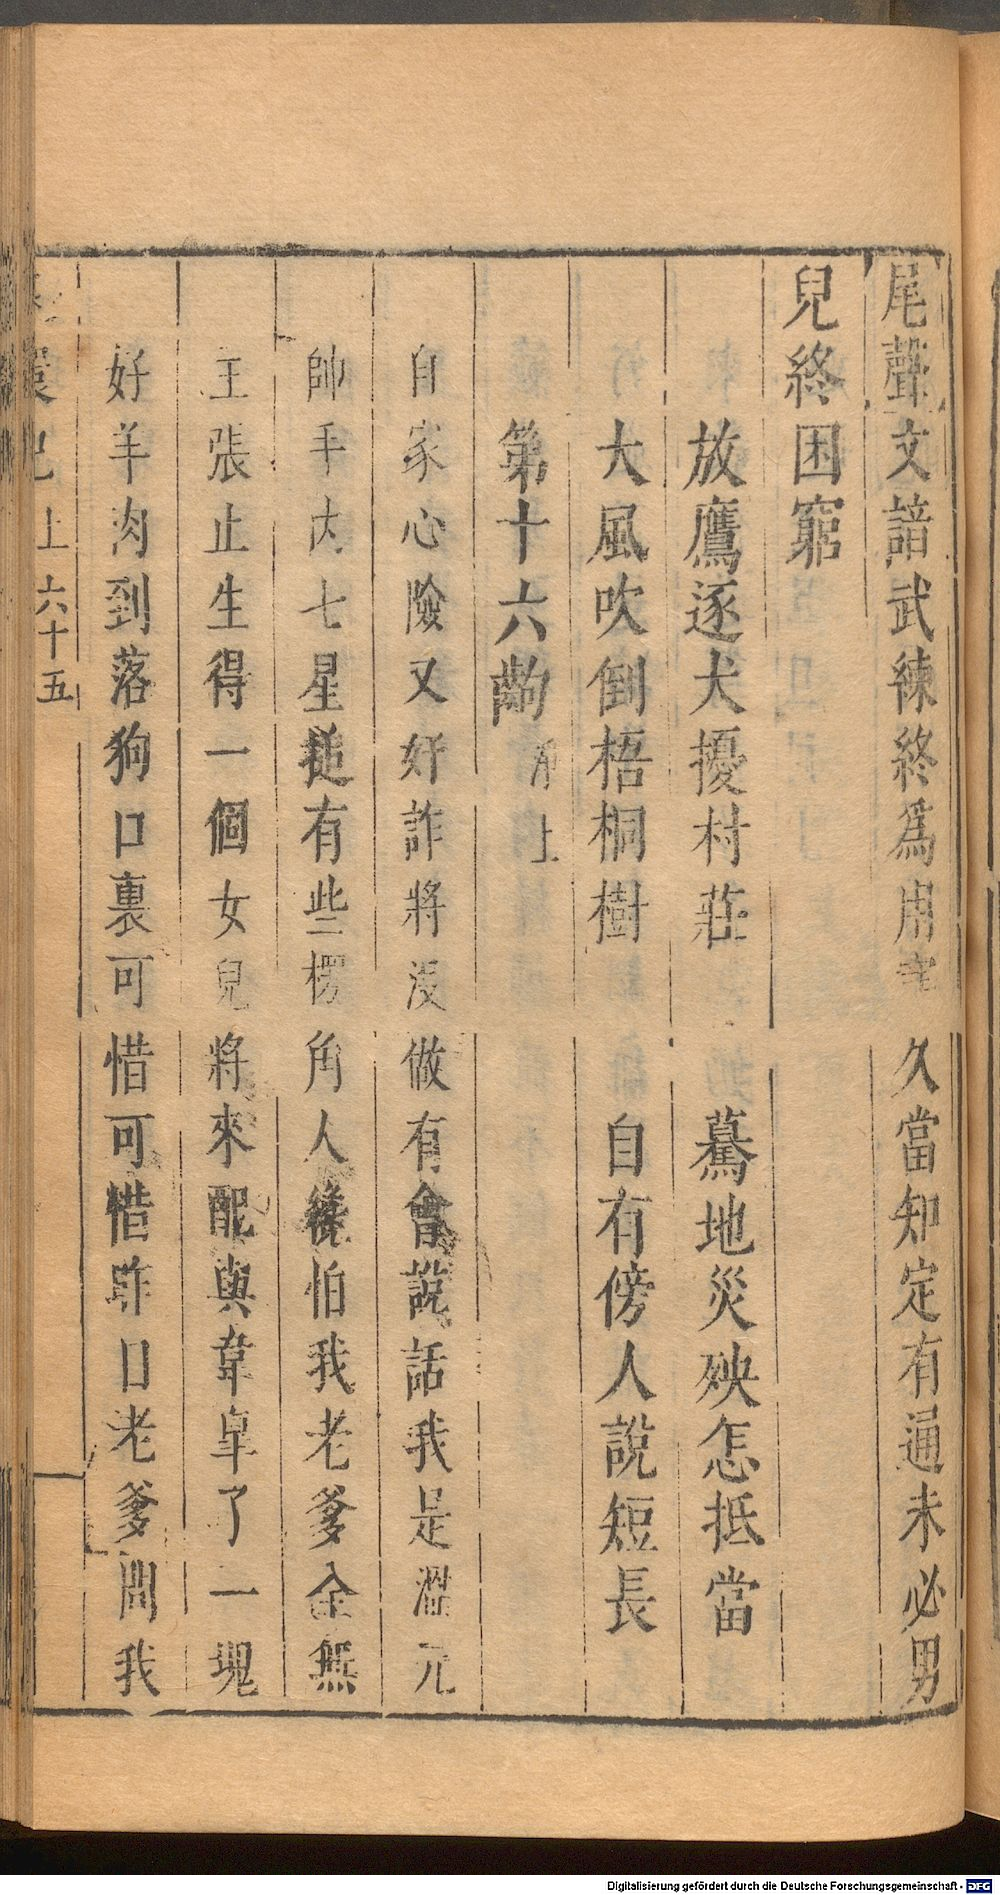 尾聲文諳武練終爲用 久當知定有通未必男
兒終困窮
放鷹逐犬擾村莊 驀地災殃怎抵當
大風吹倒梧桐樹 自有傍人說短長
第十六齣 上
自家心險又奸詐將沒做有會說話我是涊元
帥手內七星搥有些楞角人後怕我老爹全無
主張止生得一個女兒將來配與韋臯了一塊
好羊肉到落狗口裏可惜可惜昨日老爹問我
環記 上 六十五
Digitalisierung gefördert durch die Deutsche Forschungsgemeinschaft - DFG